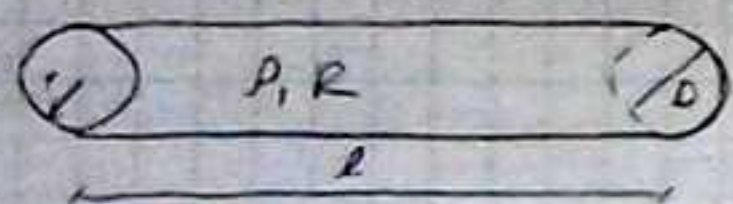 ρ, R D
l